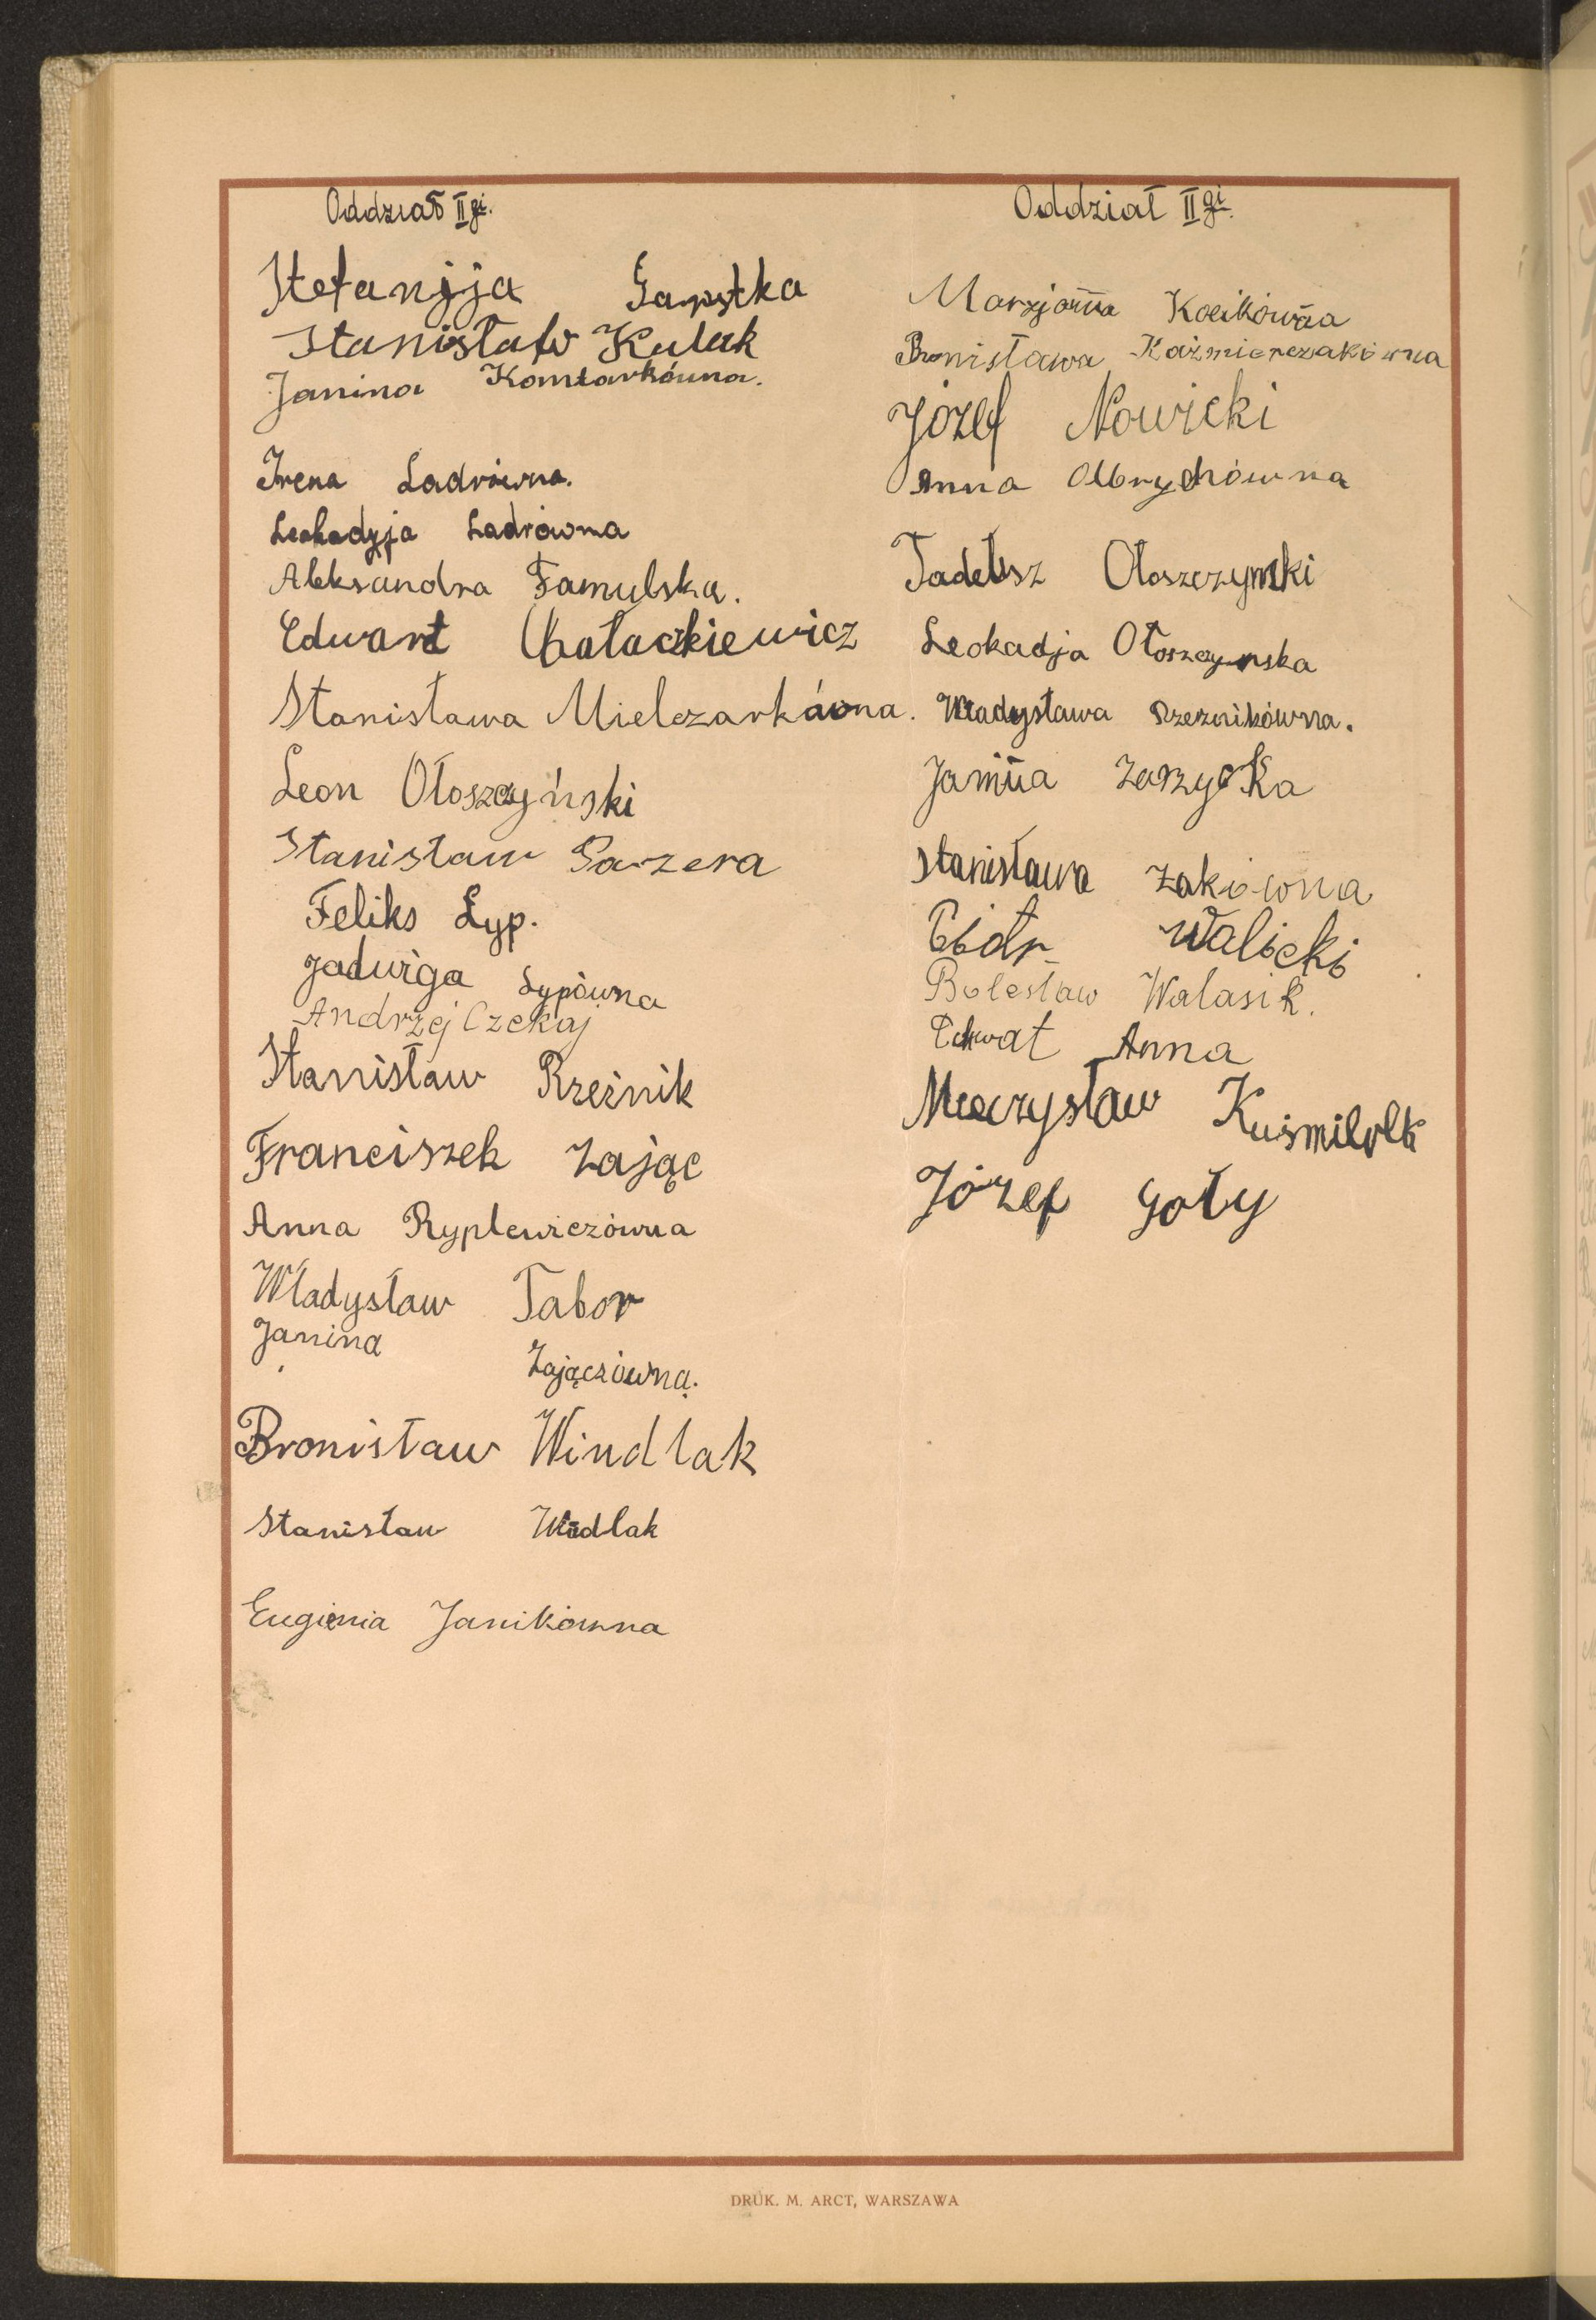 Oddział II gi.
Stefanjja Gapstka
Stanisław Kulak
Janina Komtarkówna.
Irena Ladrówna.
Leokadyja Ladrówna
Aleksandra Famulska.
Edwart Chałaczkiewicz
Stanisława Mielczarkówna.
Leon Otoszczyński
Stanisław Garzera
Feliks Łyp.
Jadwiga Łypówna
Andrzej Czekaj
Stanisław Rzeźnik
Franciszek Zając
Anna Ryplewiczówna
Władysław Tabor
Janina Zajączówna.
Bronisław Windlak
Stanisław Widlak
Eugienia Janikówna
Oddział II gi.
Marjanna Kocikówna
Bronisława Kaźmierczakówna
Józef Nowicki
Anna Olbrychówna
Tadeusz Otoszczynki
Leokadja Otoszczynska
Władysława Rzeznikówna.
Janina Zarzycka
Stanisława Żakówna
Piotr Walicki
Bolesław Walasik.
Anna
Mieczysław
Józef Goły
DRUK. M. ARCT, WARSZAWA